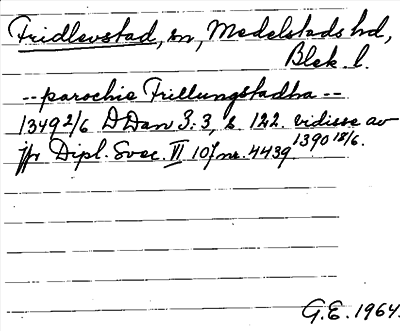 Fridlevstad, sn, Medelstads hd,
Blek. l.
-- parochie Frillungstadha --
1349 2/6 DDan 3:3, s. 122. vidisse av
jfr Dipl. Svec. VI 107 nr. 4439 1390 18/6.
G.E. 1964.